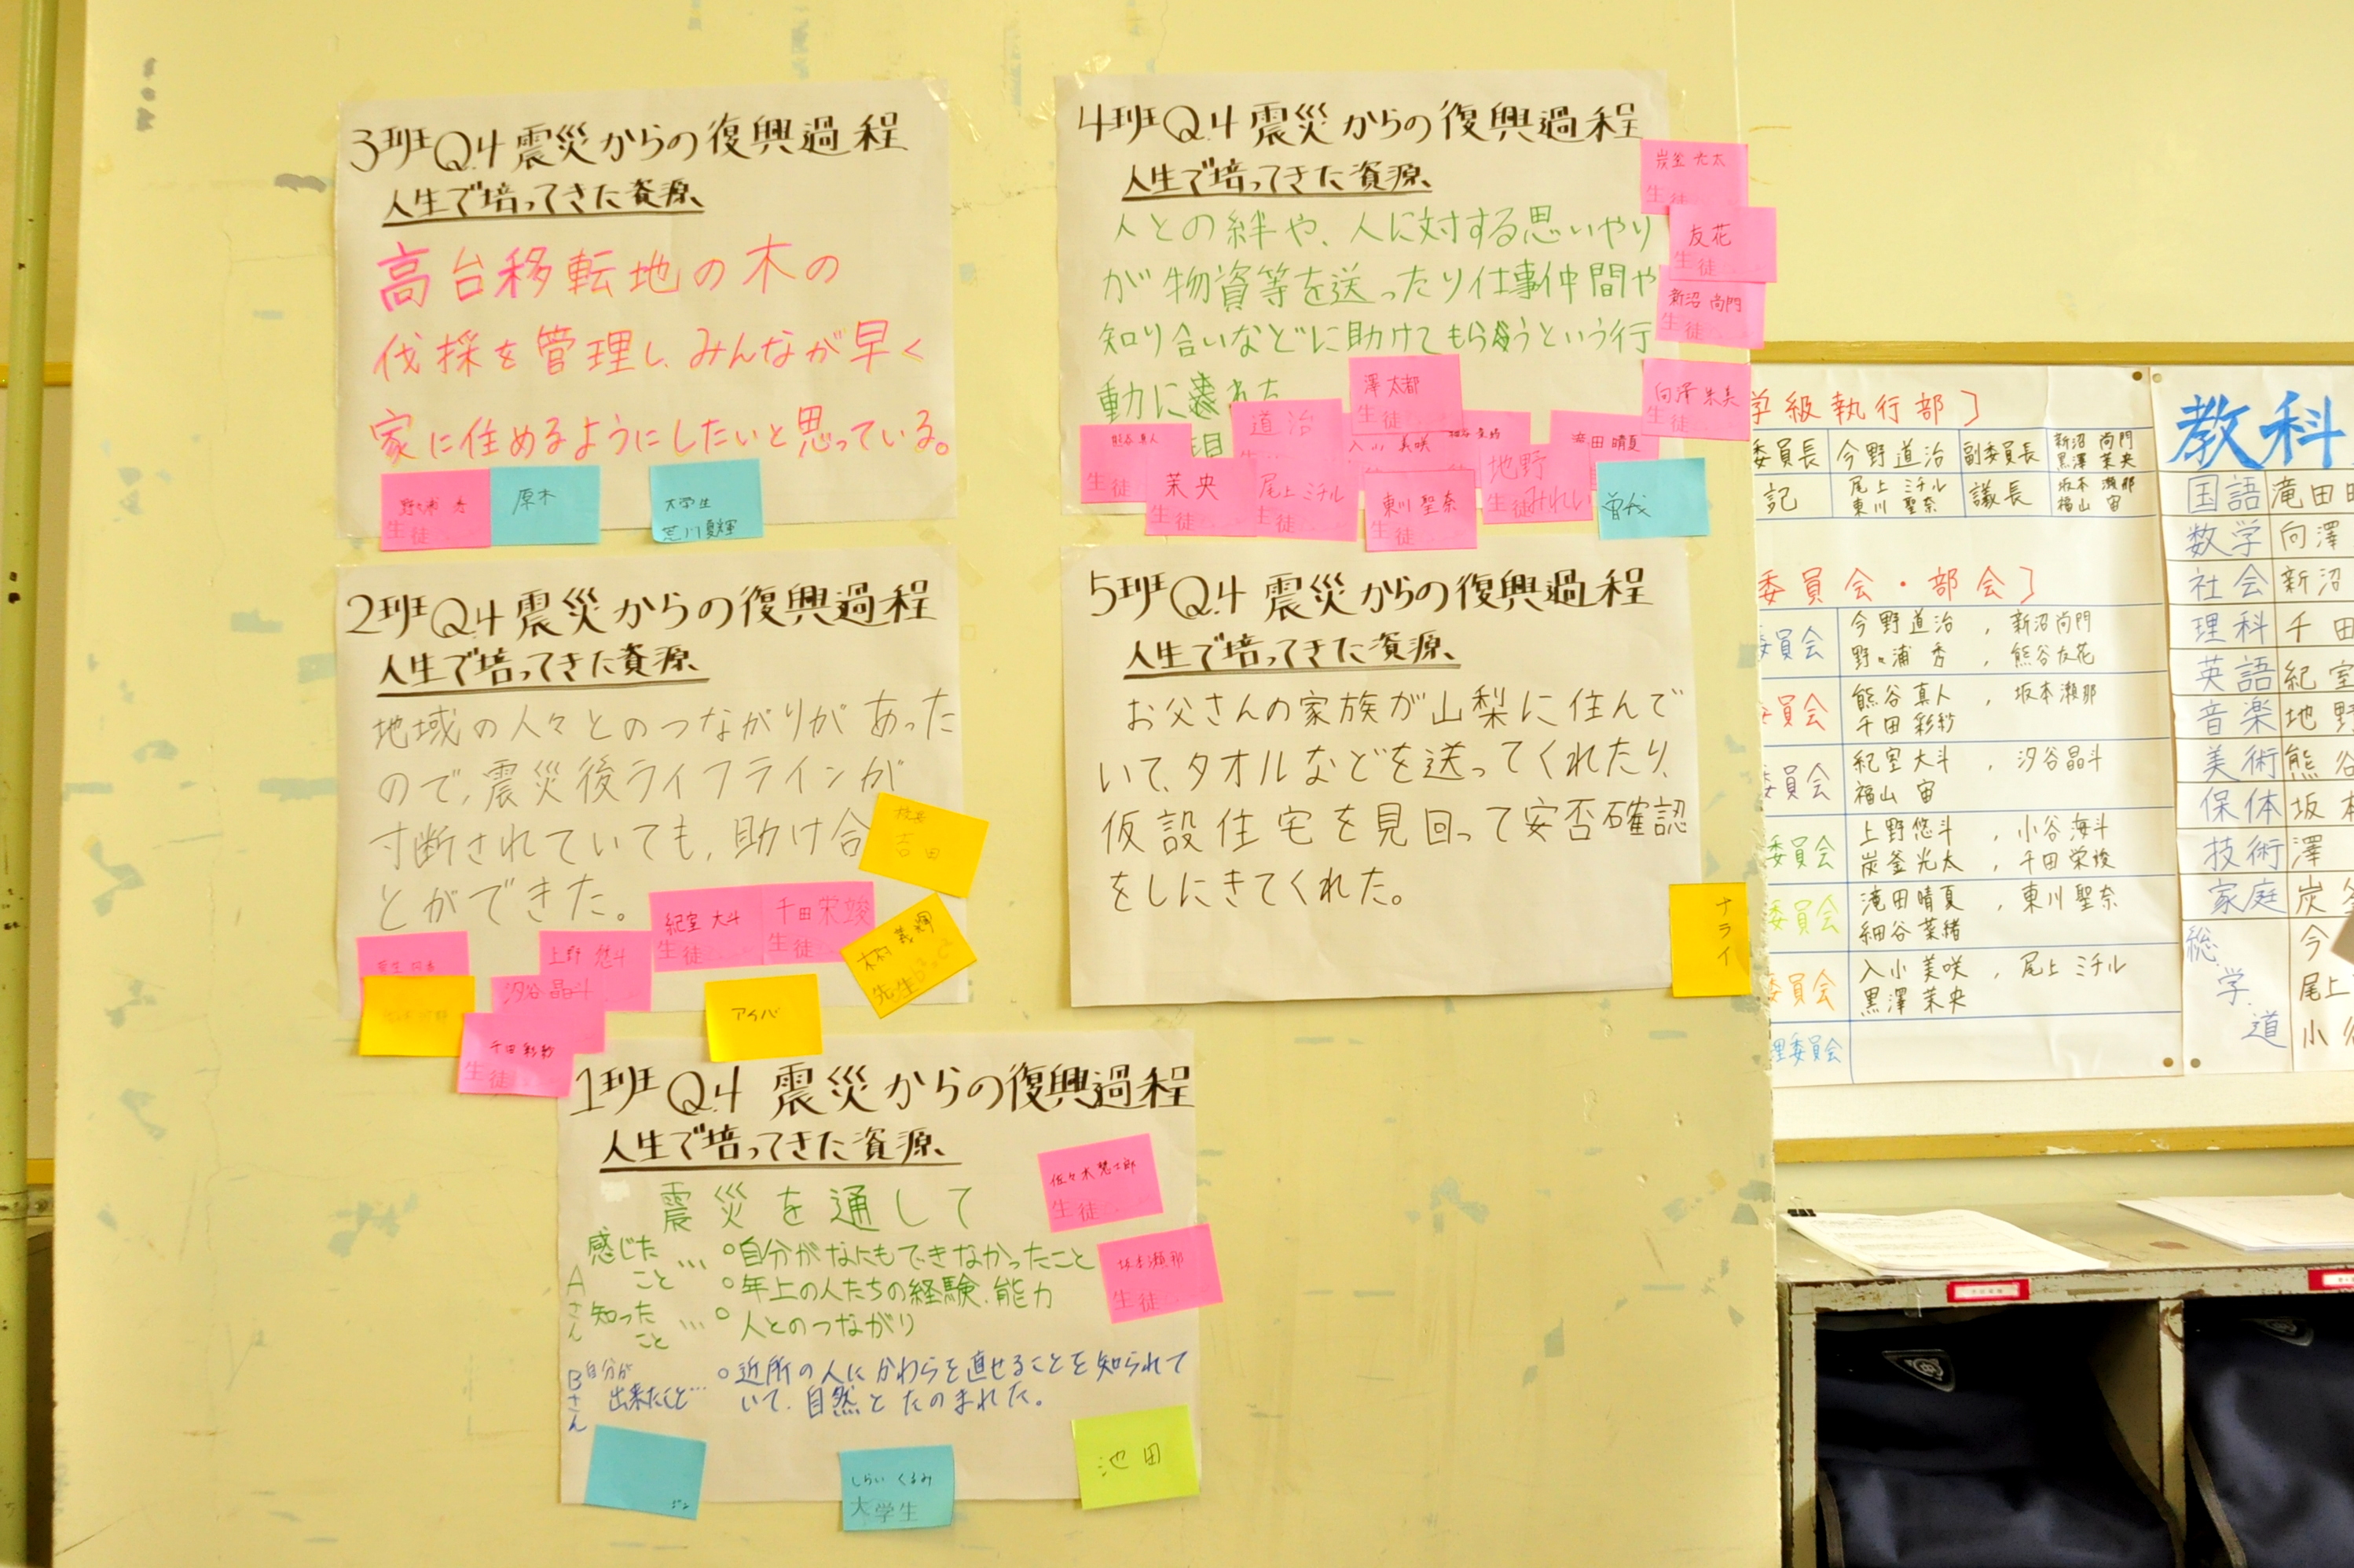 3班Q.4 震災からの復興過程
人生で培ってきた資源、
高台移転地の木の
伐採を管理し、みんなが早く
家に住めるようにしたいと思っている。
生徒
原木
大学生
荒川夏輝
4班Q.4 震災からの復興過程
人生で培ってきた資源、
人との絆や、人に対する思いやり
が物資等を送ったり仕事仲間や
知り合いなどに助けてもらうという行
動に
炭釜 光太
生徒
友花
生徒
新沼 尚門
生徒
向澤 朱美
生徒
澤 太都
生徒
道治
熊谷 真人
生徒
茉央
生徒
尾上 ミチル
生徒
入小 美咲
東川 聖奈
生徒
地野
生徒 みれい
滝田 晴夏
曽我
2班Q.4 震災からの復興過程
人生で培ってきた資源、
地域の人々とのつながりがあった
ので、震災後ライフラインが
寸断されていても、助け合
とができた。
吉田
紀室 大斗
生徒
千田 栄竣
生徒
上野 悠斗
汐谷 晶斗
千田 彩紗
生徒
アイバ
義輝
先生
5班Q.4 震災からの復興過程
人生で培ってきた資源、
お父さんの家族が山梨に住んで
いて、タオルなどを送ってくれたり、
仮設住宅を見回って安否確認
をしにきてくれた。
ナライ
1班 Q.4 震災からの復興過程
人生で培ってきた資源、
震災を通して
Aさん
感じたこと… ○自分がなにもできなかったこと
○年上の人たちの経験、能力
知ったこと… ○人とのつながり
Bさん
自分が出来たこと… ○近所の人にかわらを直せることを知られて
いて、自然とたのまれた。
佐々木 慧士郎
生徒
坂本 瀬那
生徒
しらい くるみ
大学生
池田
学級執行部]
委員長 今野道治 副委員長 新沼 尚門 黒澤 茉央
記 尾上 ミチル 東川 聖奈 議長 坂本 瀬那 福山 宙
委員会・部会]
委員会 今野道治 , 新沼尚門
野々浦 秀 , 熊谷友花
委員会 熊谷 真人 , 坂本瀬那
千田 彩紗
委員会 紀室 大斗 , 汐谷晶斗
福山 宙
委員会 上野悠斗 , 小谷海斗
炭釜光太 , 千田栄竣
委員会 滝田晴夏 , 東川聖奈
細谷菜緒
委員会 入小 美咲 , 尾上 ミチル
黒澤 茉央
理委員会
教科
国語 滝田
数学 向澤
社会 新沼
理科 千田
英語 紀室
音楽 地野
美術 熊谷
保体 坂本
技術 澤
家庭 炭釜
総 今
学 尾上
道 小谷